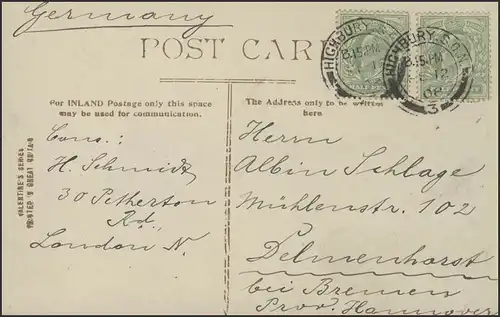 Germany
POST CARD
HIGHBURY
8.15.PM
HIGHBURY S.O.N.
8.15.PM
12
08
3
HALF
For INLAND Postage only this space
may be used for communication.
The Address only to be written
here
VALENTINE'S SERIES
PRINTED IN GREAT BRITAIN
Cons:
H. Schmidt
30 Petherton
Rd.
London N.
Herrn
Albin Schlage
Mühlenstr. 102
Delmenhorst
bei Bremen
Prov. Hannover